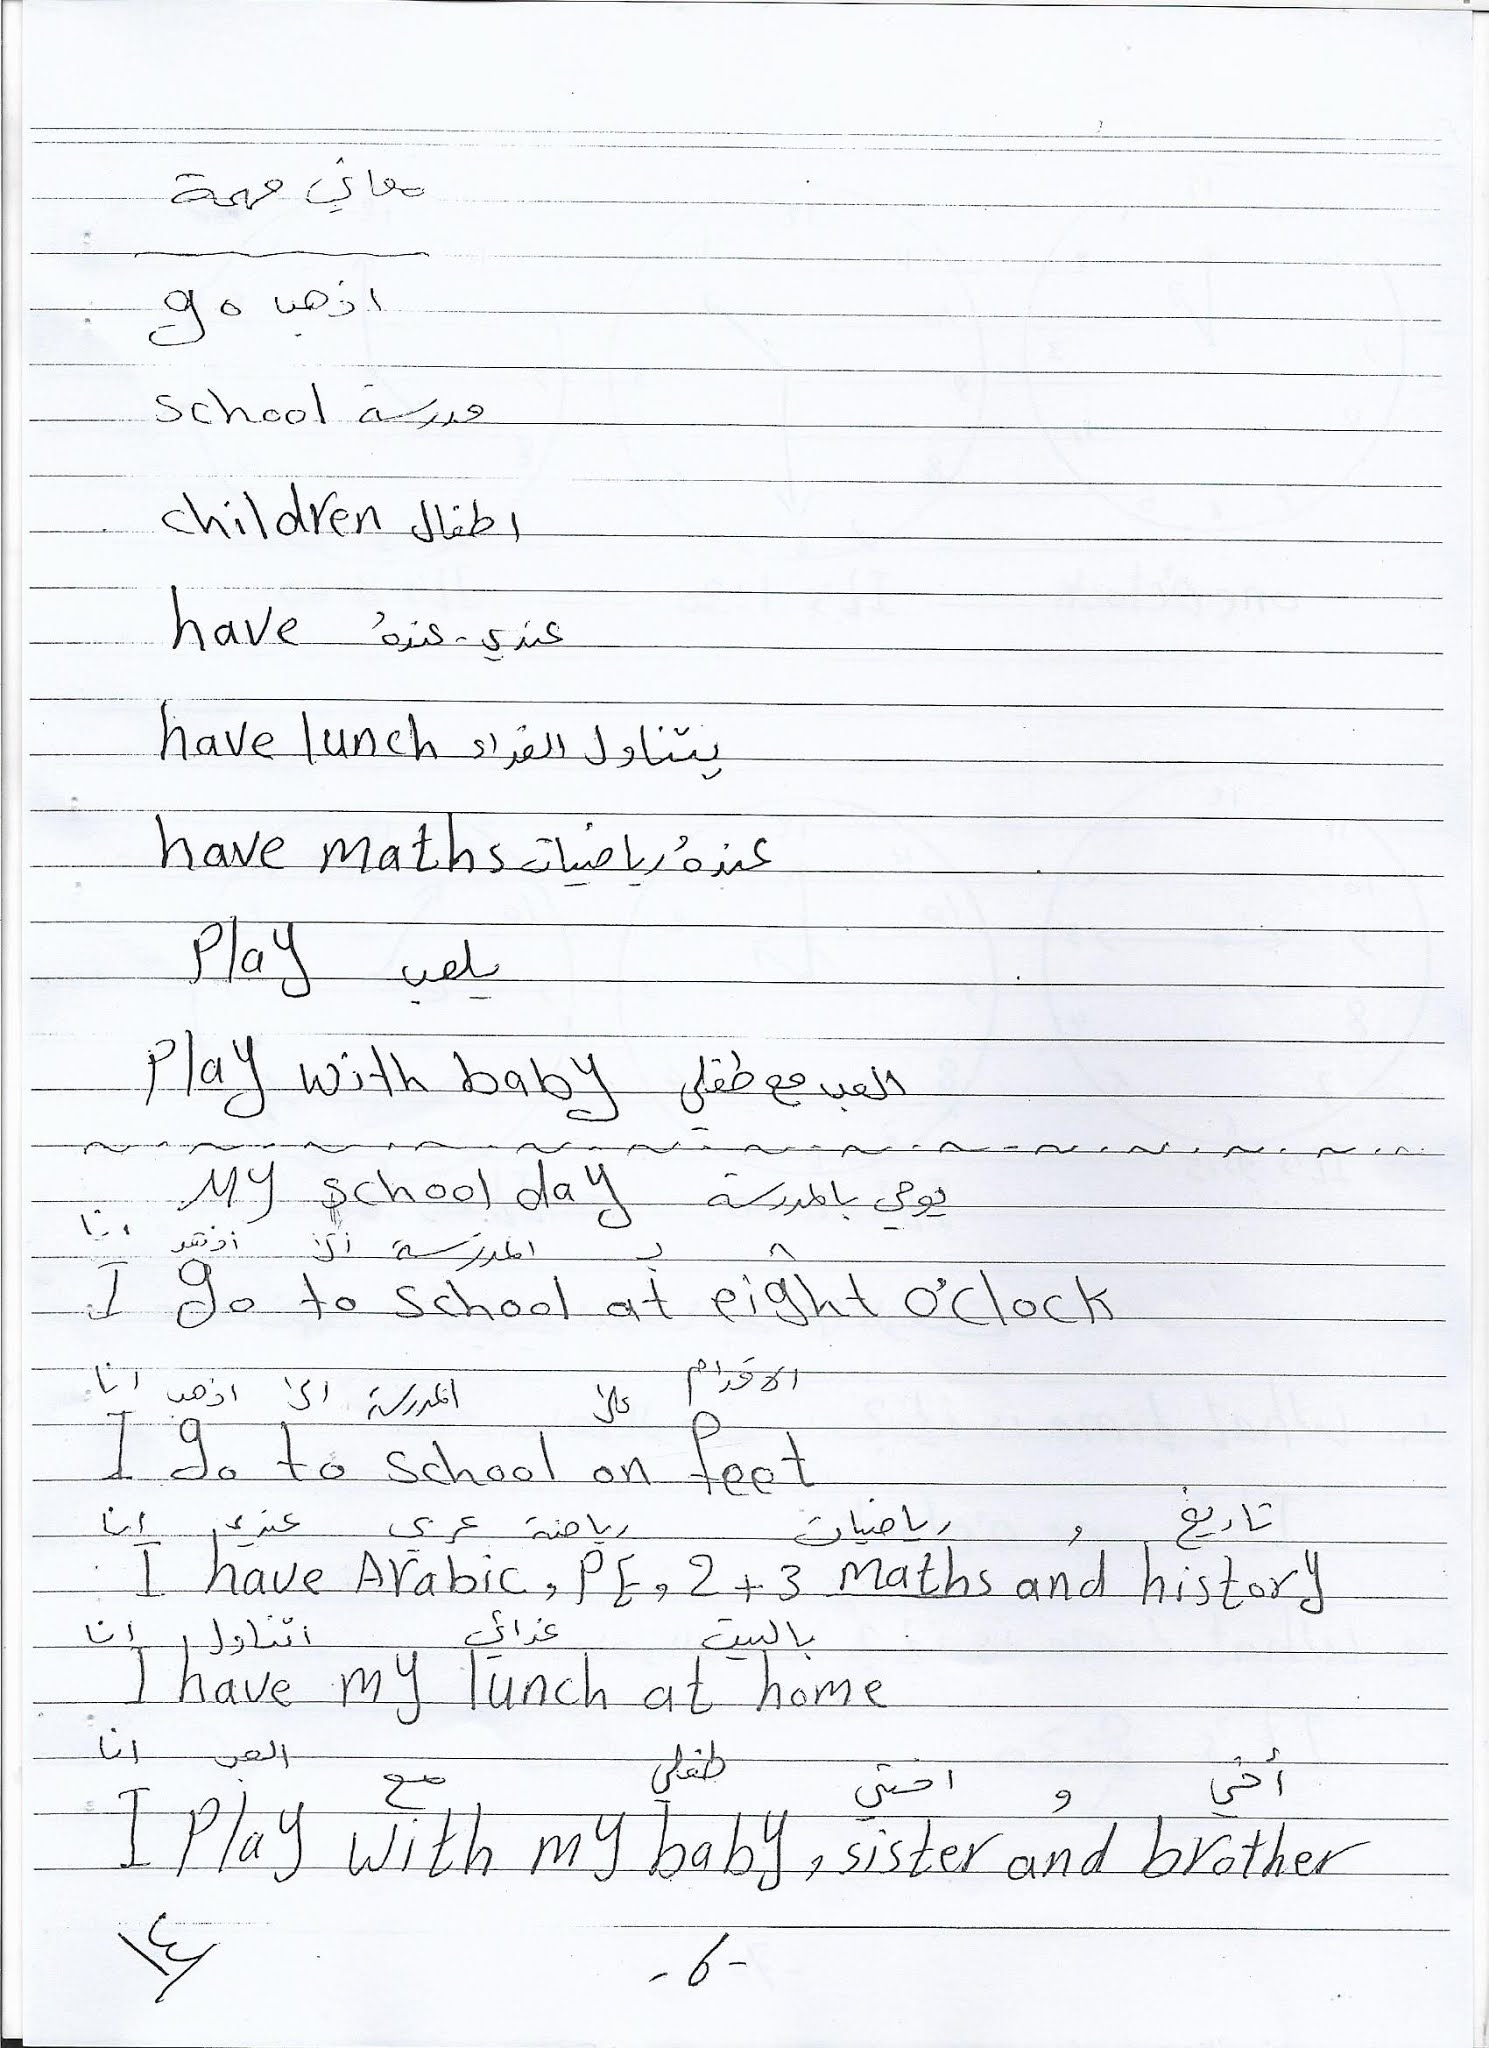 معاني مهمة
go اذهب
school مدرسة
children اطفال
have عندي - عندهُ
have lunch يتناول الغداء
have maths عندهُ رياضيات
Play يلعب
Play with baby العب مع طفلي
My school day يومي بالمدرسة
انا اذهب الى المدرسة بـ ٨
I go to school at eight o'clock
انا اذهب الى المدرسة على الاقدام
I go to school on feet
انا عندي عربي رياضة رياضيات و تاريخ
I have Arabic, PE, 2+3 Maths and history
انا اتناول غدائي بالبيت
I have my lunch at home
انا العب مع طفلي اختي و أخي
I Play with my baby, sister and brother
-6-